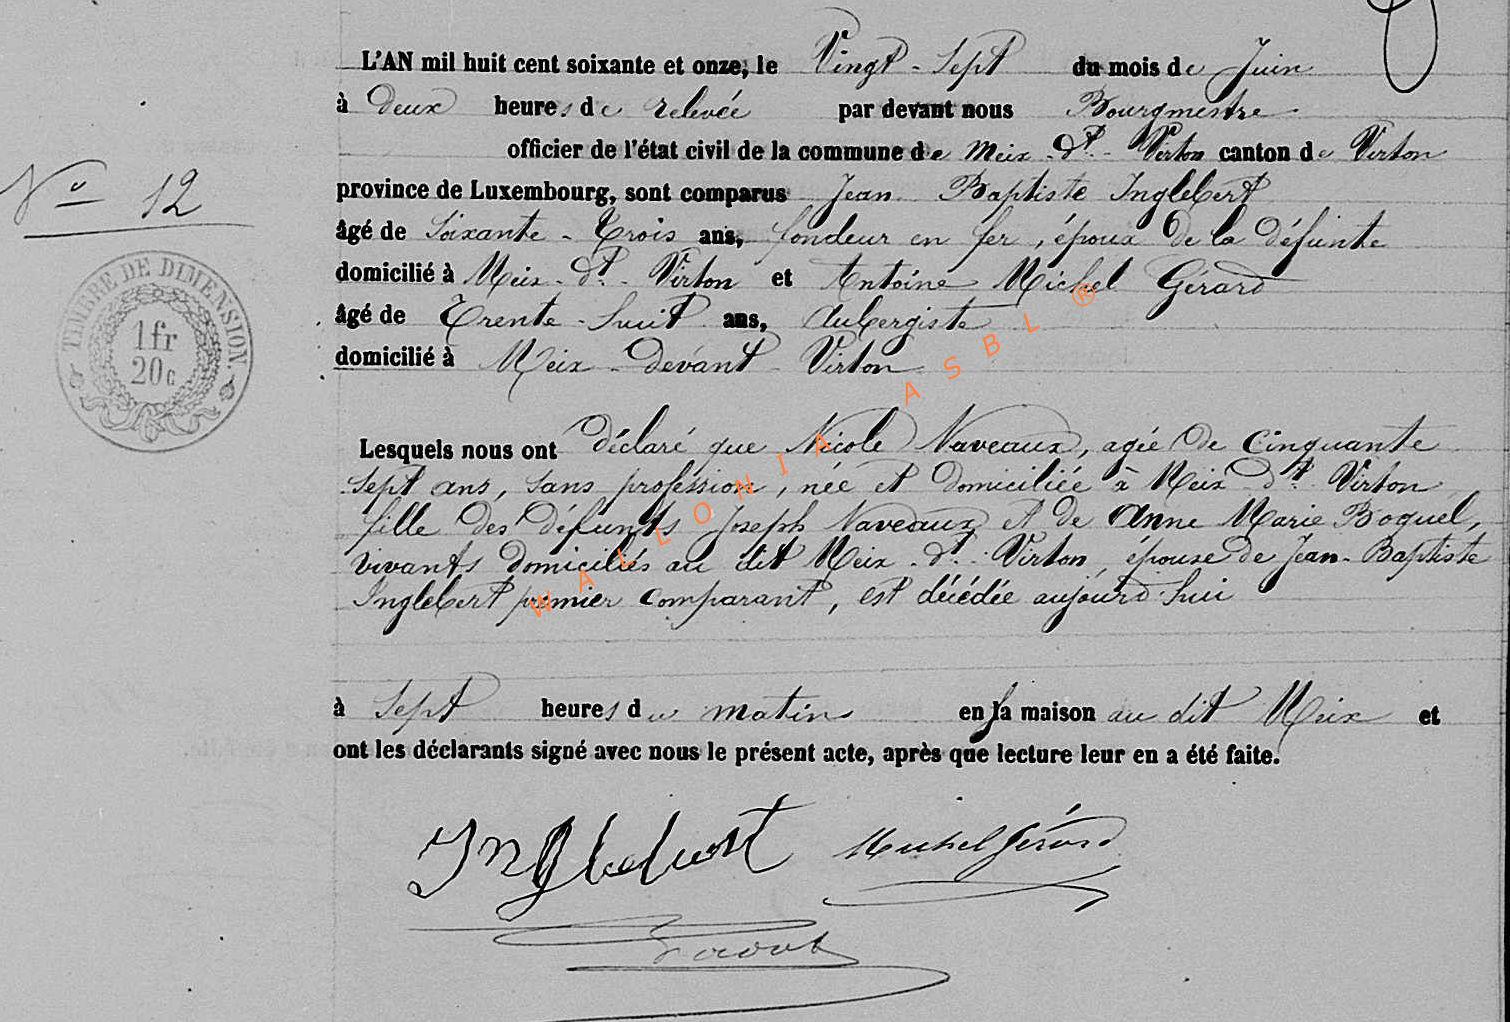 L'AN mil huit cent soixante et onze, le Vingt-Sept du mois de Juin
à deux heures de relevée par devant nous Bourgmestre
officier de l'état civil de la commune de Meix-dt-Virton canton de Virton
No 12
province de Luxembourg, sont comparus Jean Baptiste Inglebert
âgé de Soixante-Trois ans, fondeur en fer, époux de la défunte
domicilié à Meix-dt-Virton et Antoine Michel Gérard
âgé de Trente-huit ans, Aubergiste
domicilié à Meix-devant-Virton
TIMBRE DE DIMENSION.
1 fr
20 c
Lesquels nous ont déclaré que Nicole Naveaux, agée de Cinquante
Sept ans, Sans profession, née et domiciliée à Meix dt Virton
fille des défunts Joseph Naveaux et de Anne Marie Boquel,
vivants domiciliés au dit Meix-dt-Virton, épouse de Jean-Baptiste
Inglebert premier comparant, est décédée aujourd'hui
à Sept heures du matin en sa maison au dit Meix et
ont les déclarants signé avec nous le présent acte, après que lecture leur en a été faite.
Inglebert Michel Gérard
WALLONIA ASBL ®